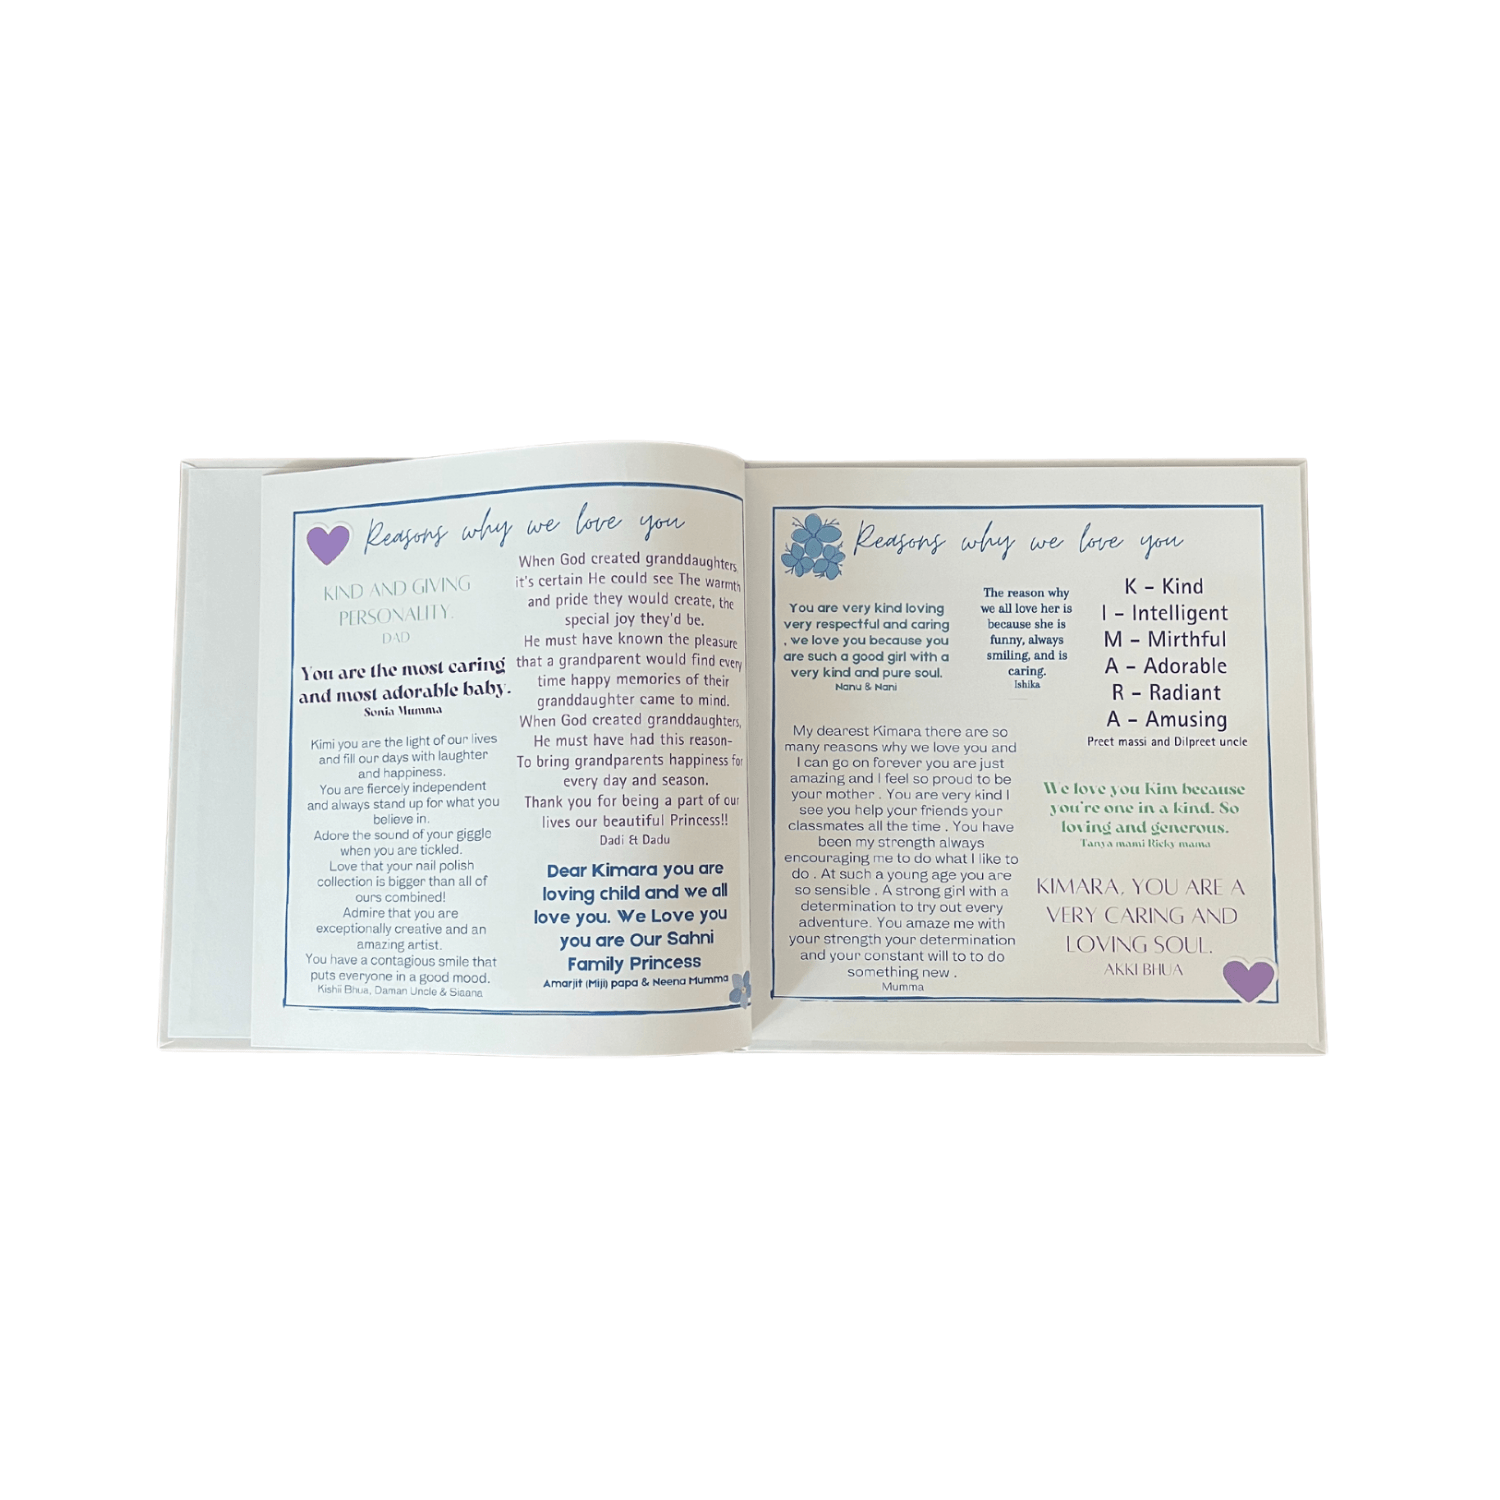 Reasons why we love you
KIND AND GIVING
PERSONALITY.
DAD
You are the most caring
and most adorable baby.
Sonia Mumma
Kimi you are the light of our lives
and fill our days with laughter
and happiness.
You are fiercely independent
and always stand up for what you
believe in.
Adore the sound of your giggle
when you are tickled.
Love that your nail polish
collection is bigger than all of
ours combined!
Admire that you are
exceptionally creative and an
amazing artist.
You have a contagious smile that
puts everyone in a good mood.
Kishii Bhua, Daman Uncle & Siaana
When God created granddaughters,
it's certain He could see The warmth
and pride they would create, the
special joy they'd be.
He must have known the pleasure
that a grandparent would find every
time happy memories of their
granddaughter came to mind.
When God created granddaughters,
He must have had this reason-
To bring grandparents happiness for
every day and season.
Thank you for being a part of our
lives our beautiful Princess!!
Dadi & Dadu
Dear Kimara you are
loving child and we all
love you. We Love you
you are Our Sahni
Family Princess
Amarjit (Miji) papa & Neena Mumma
Reasons why we love you
You are very kind loving
very respectful and caring
, we love you because you
are such a good girl with a
very kind and pure soul.
Nanu & Nani
The reason why
we all love her is
because she is
funny, always
smiling, and is
caring.
Ishika
K – Kind
I – Intelligent
M – Mirthful
A – Adorable
R – Radiant
A – Amusing
Preet massi and Dilpreet uncle
My dearest Kimara there are so
many reasons why we love you and
I can go on forever you are just
amazing and I feel so proud to be
your mother . You are very kind I
see you help your friends your
classmates all the time . You have
been my strength always
encouraging me to do what I like to
do . At such a young age you are
so sensible . A strong girl with a
determination to try out every
adventure. You amaze me with
your strength your determination
and your constant will to to do
something new .
Mumma
We love you Kim because
you're one in a kind. So
loving and generous.
Tanya mami Ricky mama
KIMARA, YOU ARE A
VERY CARING AND
LOVING SOUL.
AKKI BHUA